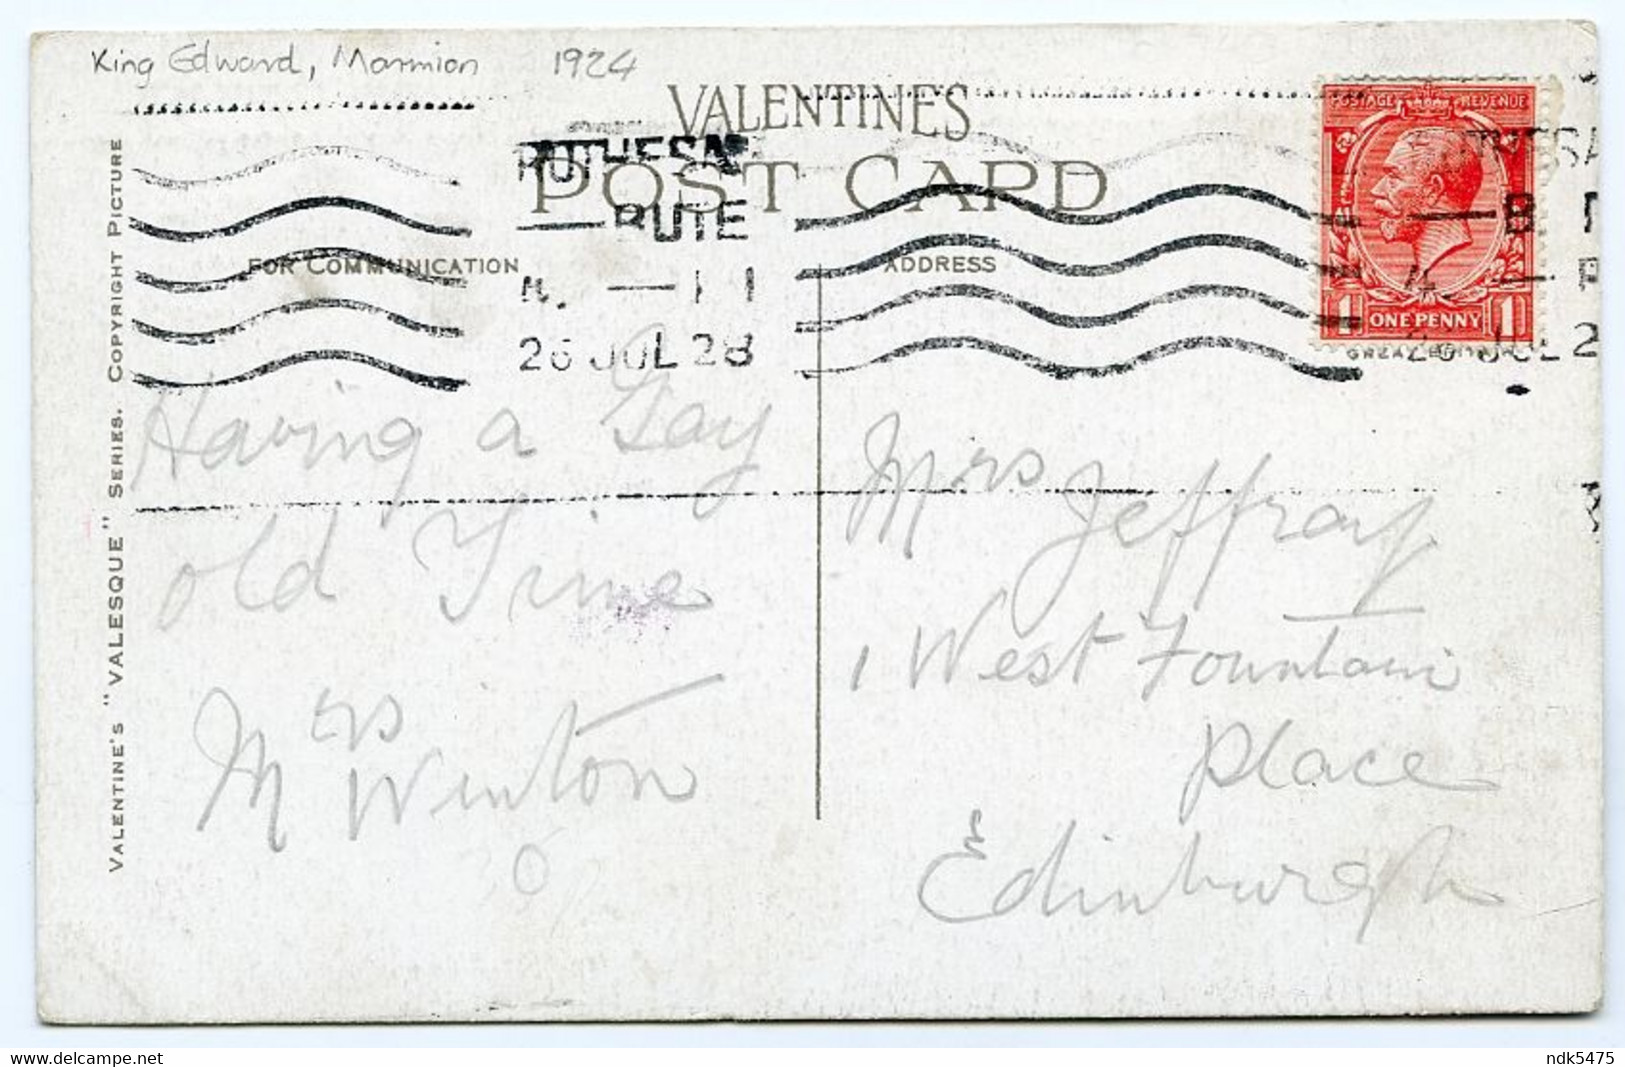 King Edward, Marmion 1924
VALENTINE'S
POST CARD
FOR COMMUNICATION
ADDRESS
ROTHESAY
BUTE
26 JUL 28
POSTAGE REVENUE
1 ONE PENNY 1
GREAT BRITAIN
Having a Gay
old Time
Mrs Winton
Mrs Jeffray
1 West Fountain
Place
Edinburgh
VALENTINE'S "VALESQUE" SERIES. COPYRIGHT PICTURE
ndk5475